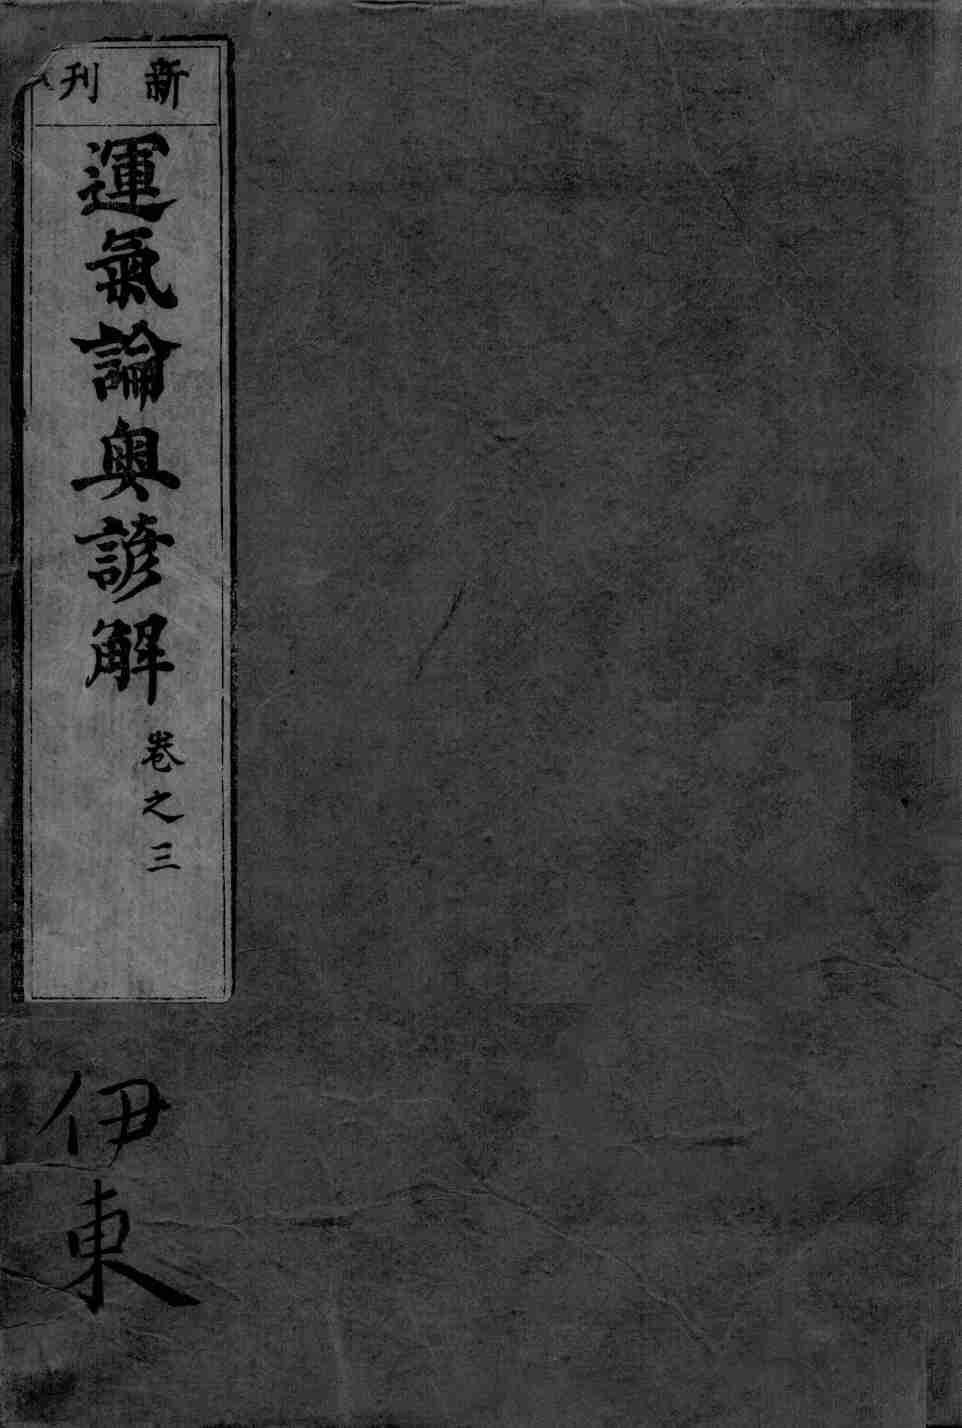 新刊
運氣論奥諺解
巻之三
伊東